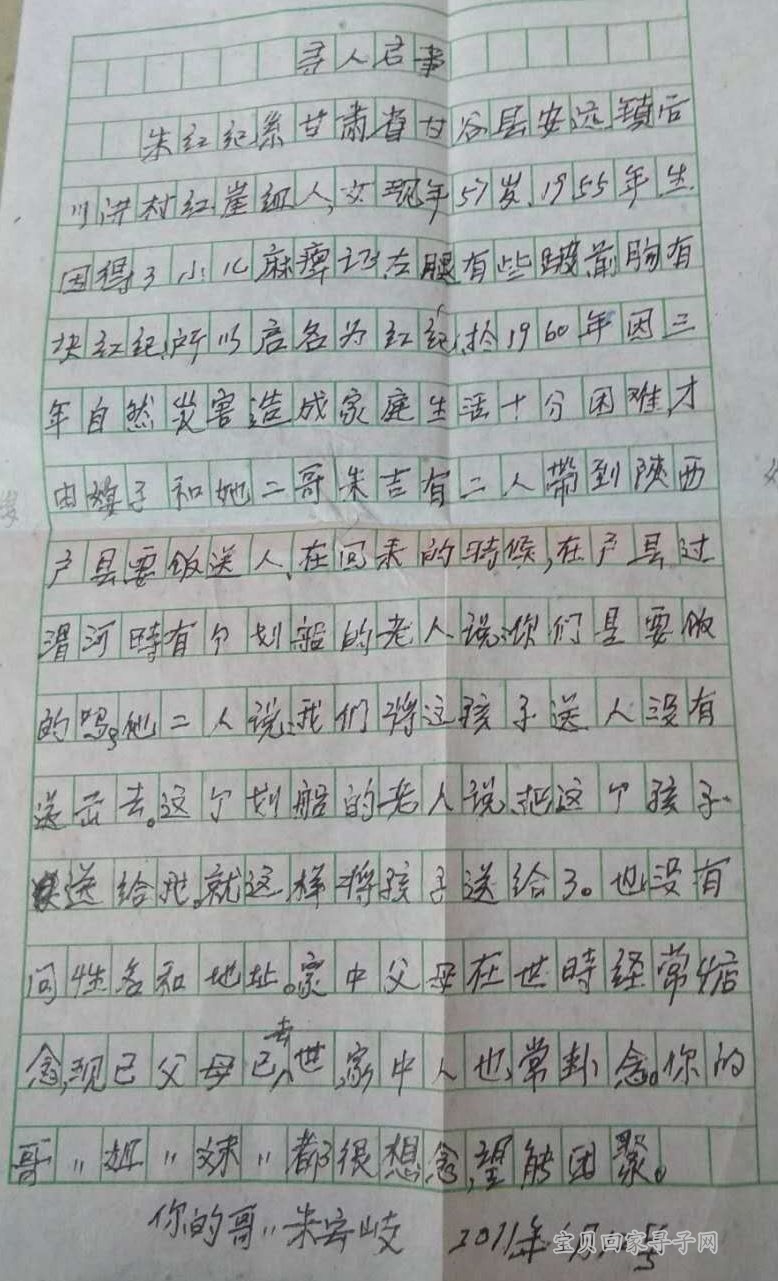 寻人启事
朱红纪系甘肃省甘谷县安远镇后
川洪村红崖组人,女现年57岁,1955年生
因得了小儿麻痹 左腿有些跛前胸有
块红纪,所以启名为红纪,於1960年因三
年自然灾害造成家庭生活十分困难,才
由嫂子和她二哥朱吉有二人带到陕西
户县要饭送人,在回来的時候,在户县过
渭河時有个划船的老人说:你们是要饭
的吗,他二人说:我们将这孩子送人没有
送出去。这个划船的老人说,把这个孩子
送给我。就这样将孩子送给了。也没有
问性名和地址。家中父母在世時经常掂
念,现已父母已去世,家中人也常卦念。你的
哥〃姐〃妹〃都很想念,望能团聚。
你的哥〃朱 岐 2011年 月
宝贝回家寻子网